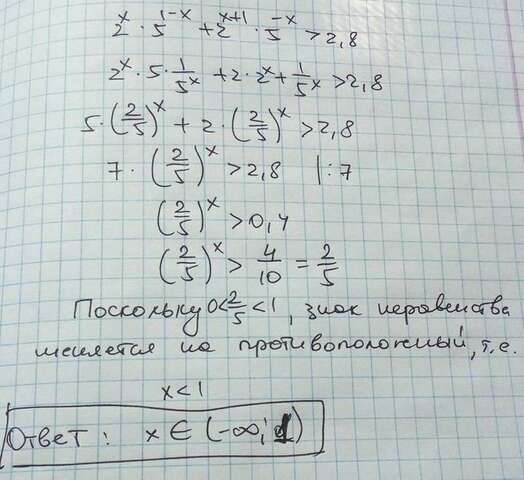 2^x · 5^(1-x) + 2^(x+1) · 5^(-x) > 2,8
2^x · 5 · 1/5^x + 2 · 2^x + 1/5^x > 2,8
5 · (2/5)^x + 2 · (2/5)^x > 2,8
7 · (2/5)^x > 2,8 | : 7
(2/5)^x > 0,4
(2/5)^x > 4/10 = 2/5
Поскольку 0 < 2/5 < 1, знак неравенства
меняется на противоположный, т.е.
x < 1
Ответ : x ∈ (-∞; 1)